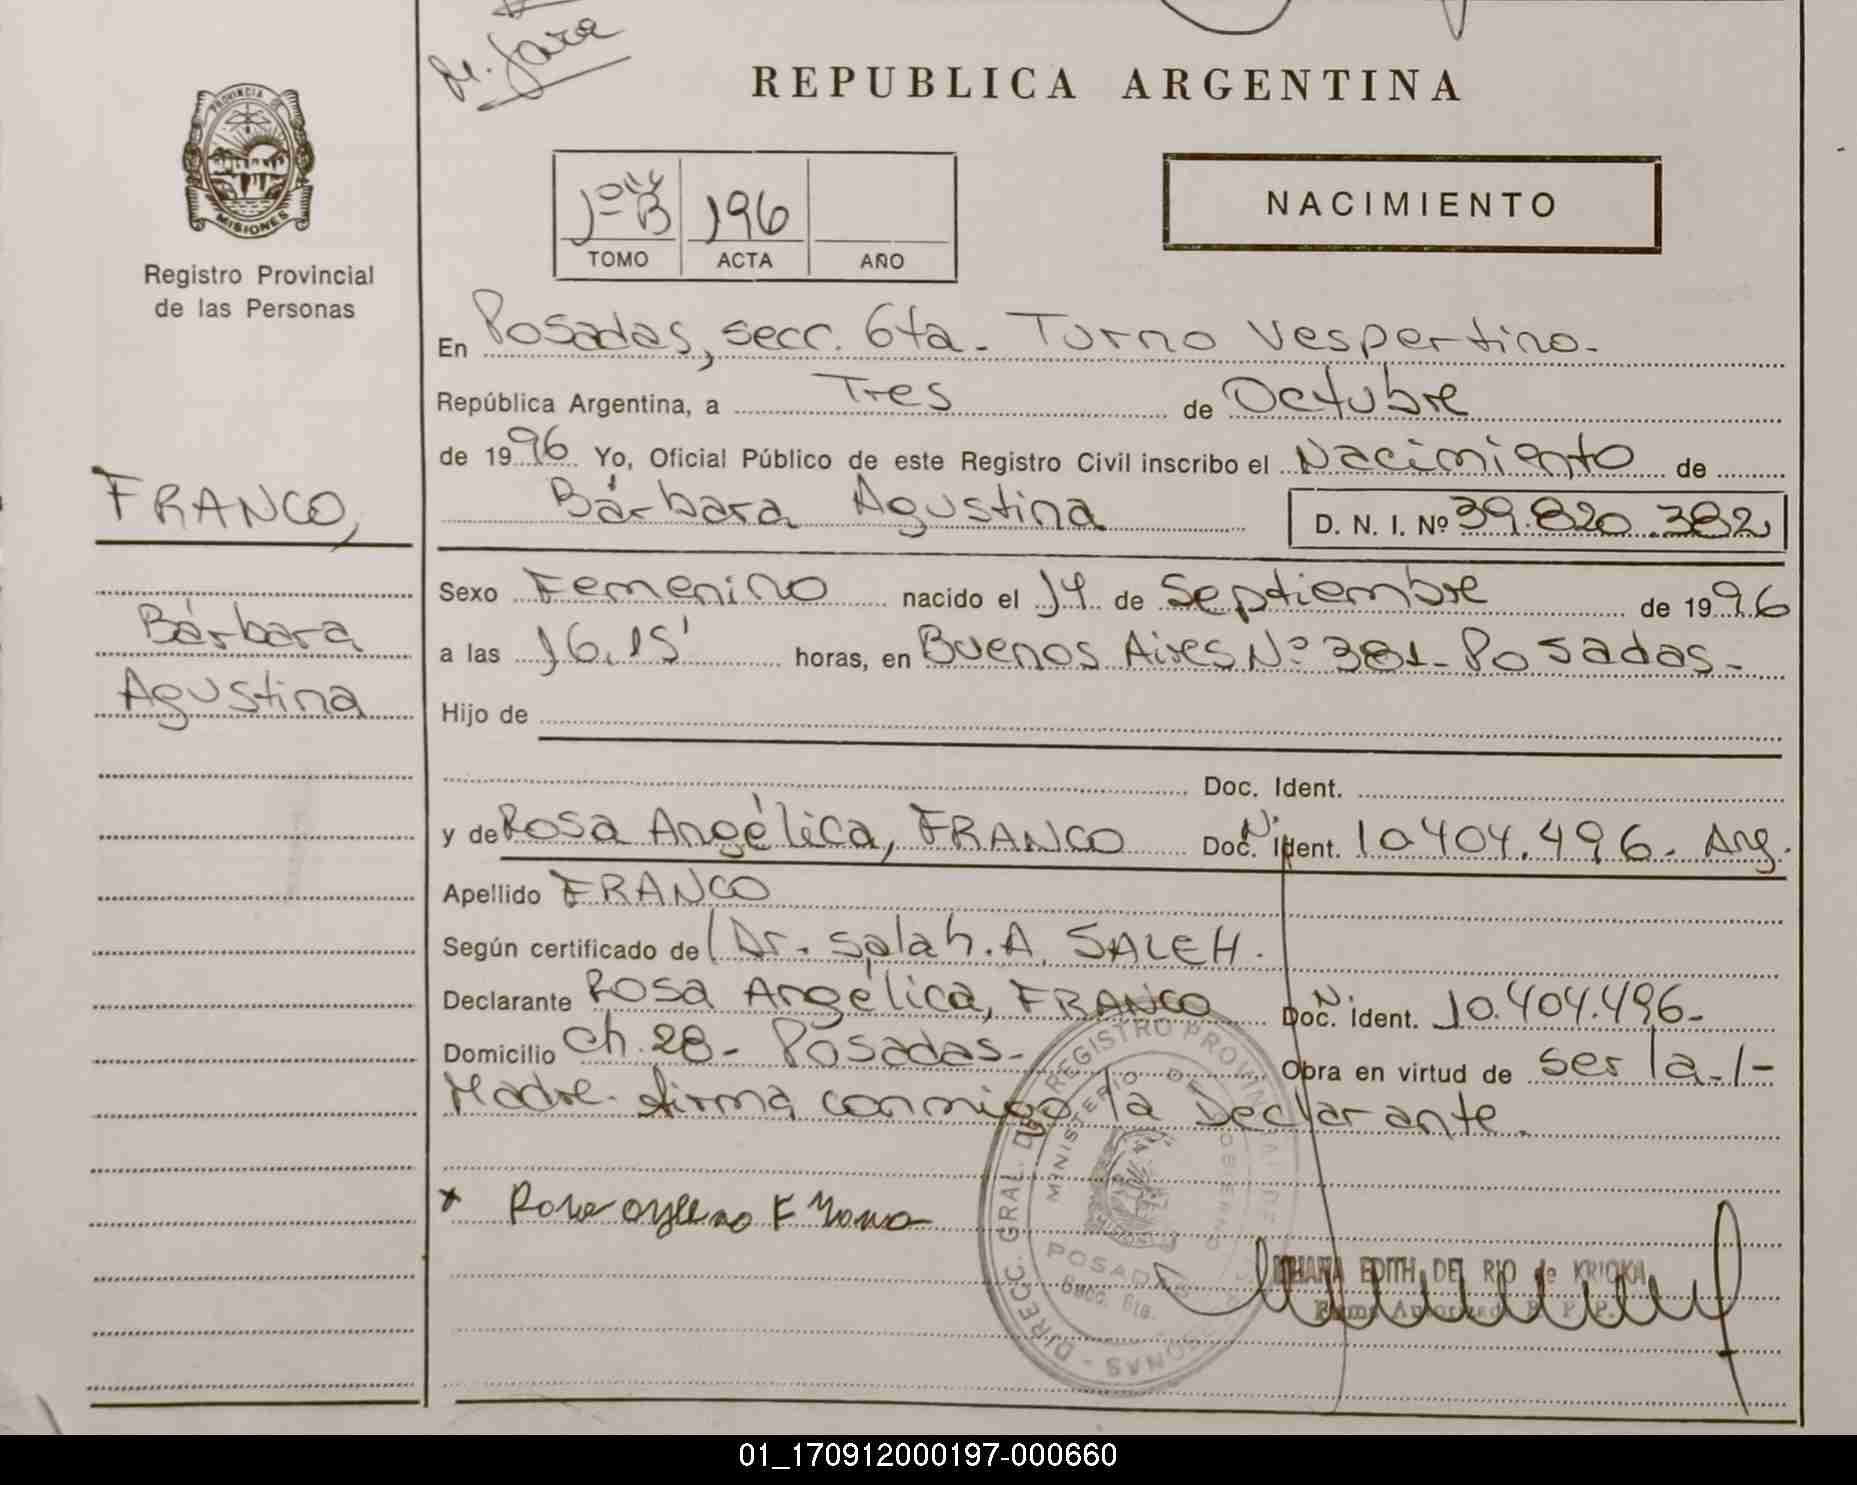 M. Jara
REPUBLICA ARGENTINA
PROVINCIA DE
MISIONES
Registro Provincial
de las Personas
1º "B" 196
TOMO ACTA AÑO
NACIMIENTO
En Posadas, secc. 6ta. Turno Vespertino.
República Argentina, a Tres de Octubre
de 1996 Yo, Oficial Público de este Registro Civil inscribo el Nacimiento de
Bárbara Agustina D. N. I. Nº 39.820.382
FRANCO,
Bárbara
Agustina
Sexo Femenino nacido el 14 de Septiembre de 1996
a las 16.15' horas, en Buenos Aires Nº 381- Posadas-
Hijo de
Doc. Ident.
y de Rosa Angélica, FRANCO Doc. Ident. Ni 10.404.496. Arg.
Apellido FRANCO
Según certificado de Dr. Salah. A. SALEH.
Declarante Rosa Angélica, FRANCO Doc. N Ident. 10.404.496-
Domicilio Ch. 28- Posadas- Obra en virtud de ser la.-
Madre. firma conmigo la Declarante.
DIRECC. GRAL. DEL REGISTRO PROVINCIAL
MINISTERIO DE GOBIERNO
MISIONES
POSADAS
Secc. 6ta.
EDITH DEL RIO de KRIOKA
01_170912000197-000660